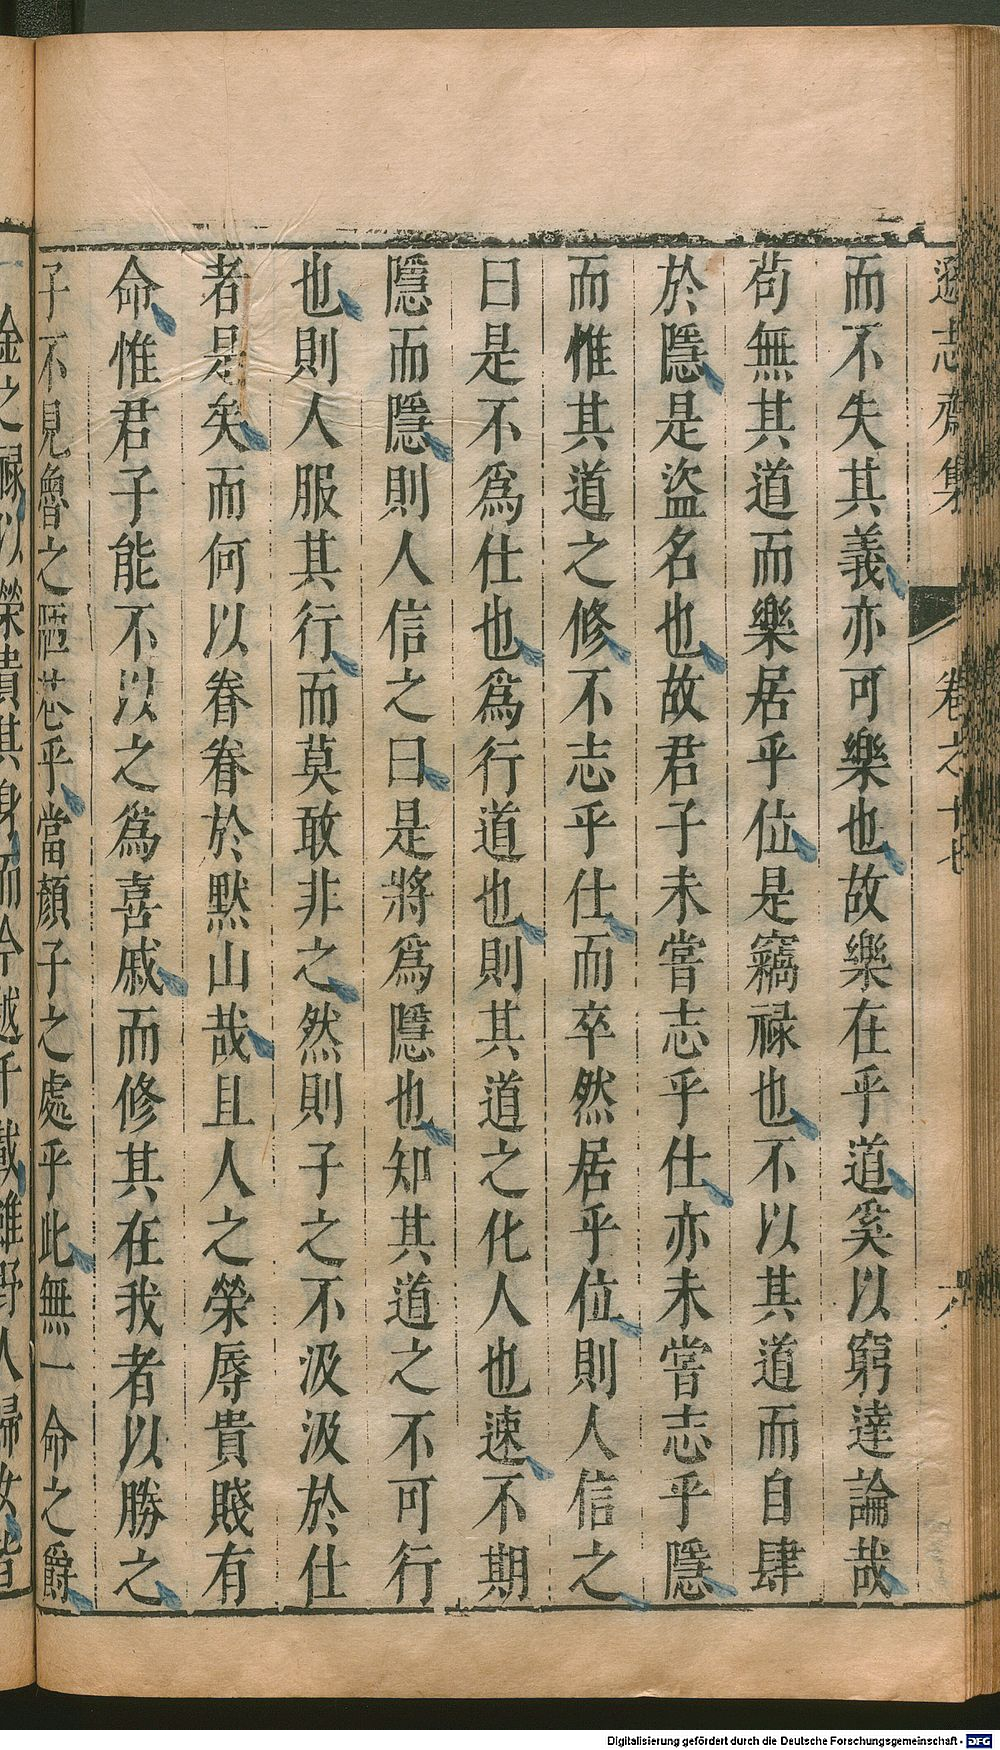 遜志齋集 卷之十七
而不失其義亦可樂也故樂在乎道奚以窮達論哉
茍無其道而樂居乎位是竊祿也不以其道而自肆
於隱是盜名也故君子未嘗志乎仕亦未嘗志乎隱
而惟其道之修不志乎仕而卒然居乎位則人信之
曰是不爲仕也爲行道也則其道之化人也速不期
隱而隱則人信之曰是將爲隱也知其道之不可行
也則人服其行而莫敢非之然則子之不汲汲於仕
者是矣而何以眷眷於默山哉且人之榮辱貴賤有
命惟君子能不以之爲喜戚而修其在我者以勝之
子不見魯之陋巷乎當顏子之處乎此無一命之爵
金之祿以榮貴其身而今越千載雖野人婦女皆
Digitalisierung gefördert durch die Deutsche Forschungsgemeinschaft - DFG